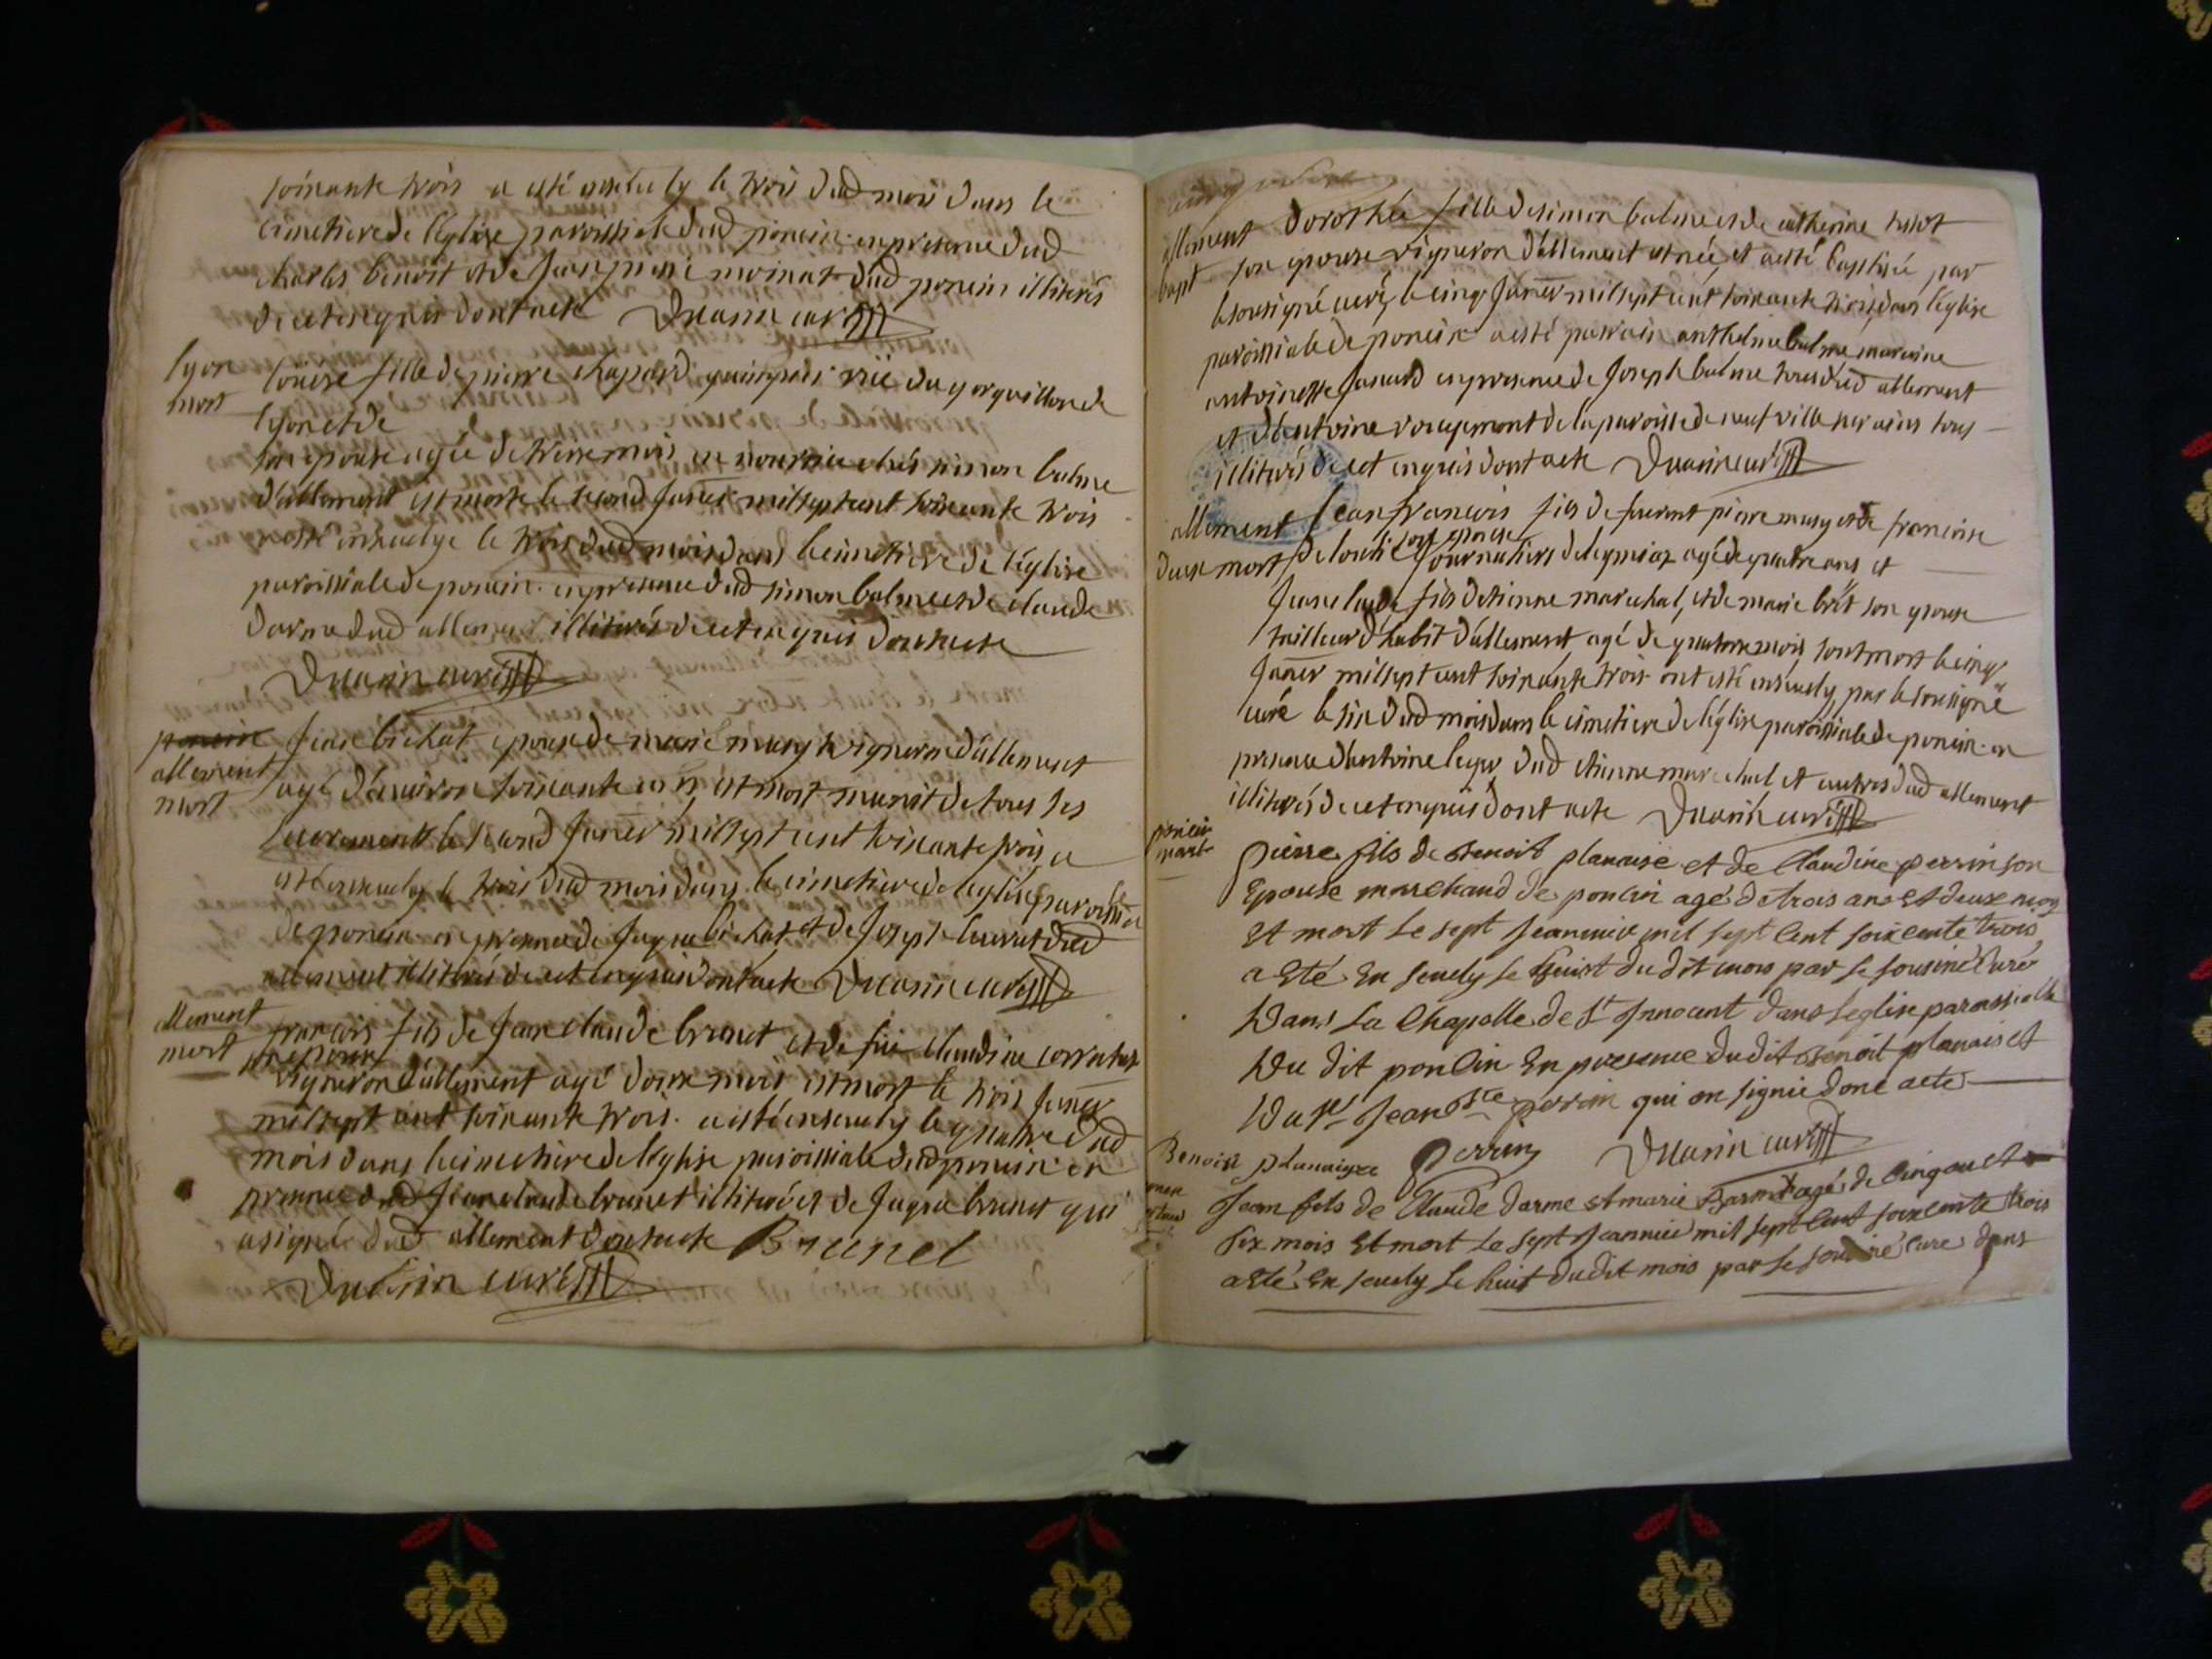 soixante trois a esté ensevely le trois dud mois dans le
cimetiere de l'église paroissiale dud poncin en presence dud
charles benoit et de Jean pierre moinat dud poncin illiterés
de ce enquis dont acte Duarin curé
lyon
mort
loüise fille de pierre chapard rüe du gorguillon de
lyon et de
son epouse agée de treize mois en nourrice chés simon balme
d'allement est morte le second Janer mil sept cent soixante trois
a esté ensevelye le trois dud mois dans le cimetiere de l'église
paroissiale de poncin en presence dud simon balme et de claude
darme dud allement illiterés de ce enquis dont acte
Duarin curé
poncin
allement
mort
Jean bichat epoux de marie musy vigneron d'allement
agé d'environ soixante ans est mort munit de tous ses
sacrements le second Janer mil sept cent soixante trois a
esté ensevely le trois dud mois dans le cimetiere de l'église paroissiale
de poncin en presence de Jaque bichat et de Joseph dud
allement illiterés de ce enquis dont acte Duarin curé
allement
mort
francois fils de Jean claude brunet et de füe claudine
son epouse
vigneron d'allement agé d'onze mois est mort le trois Janer
mil sept cent soixante trois a esté ensevely le quatre dud
mois dans le cimetiere de l'église paroissiale dud poncin en
presence dud Jean claude brunet illiteré et de Jaque brunet qui
a signé dud allement dont acte Brunel
Duarin curé
allement
bapt
Dorothée fille de simon balme et de catherine tissot
son epouse vigneron d'allement est née et a esté baptisée par
le sousigné curé le cinq Janer mil sept cent soixante trois dans l'église
paroissiale de poncin a esté parrain anthelme balme marraine
antoinette Janard en presence de Joseph balme tous dud allement
et d'antoine rougemont de la paroisse de neufville sur ains tous
illiterés de ce enquis dont acte Duarin curé
allement
deux mort
Jean francois fils de pierre musy et de francoise
son epouse
Journaliers de leymiaz agé de quatre ans et
Jean claude fils d'etienne marechal, et de marie brét son epouse
tailleur d'habit d'allement, agé de quatorze mois, sont mort le cinq
Janer mil sept cent soixante trois ont esté ensevely par le sousigné
curé le six dud mois dans le cimetiere de l'église paroissiale de poncin en
presence d'antoine leger dud etienne marechal et autres dud allement
illiterés de ce enquis dont acte Duarin curé
poncin
mort
pierre fils de Benoit planaise et de Claudine perrin son
Epouse marchand de poncin agé de trois ans et deux mois
Et mort Le sept Jeanvier mil sept Cent soixcente trois
a Eté En sevely Le huit du dit mois par Le sousiné Curé
Dans La Chapelle de St Innocent dans Leglise paroissialle
Du dit poncin En presence du dit Benoit planais et
Du sr Jean Bte perrin qui on signié done acte
Benoist planaisse Perrin Duarin curé
Jean fils de Claude darme et marie agé de Cinq an et
six mois Et mort Le sept Jeanvier mil sept Cent soixcente trois
a Eté En sevely Le huit du dit mois par Le sousiné Curé dans